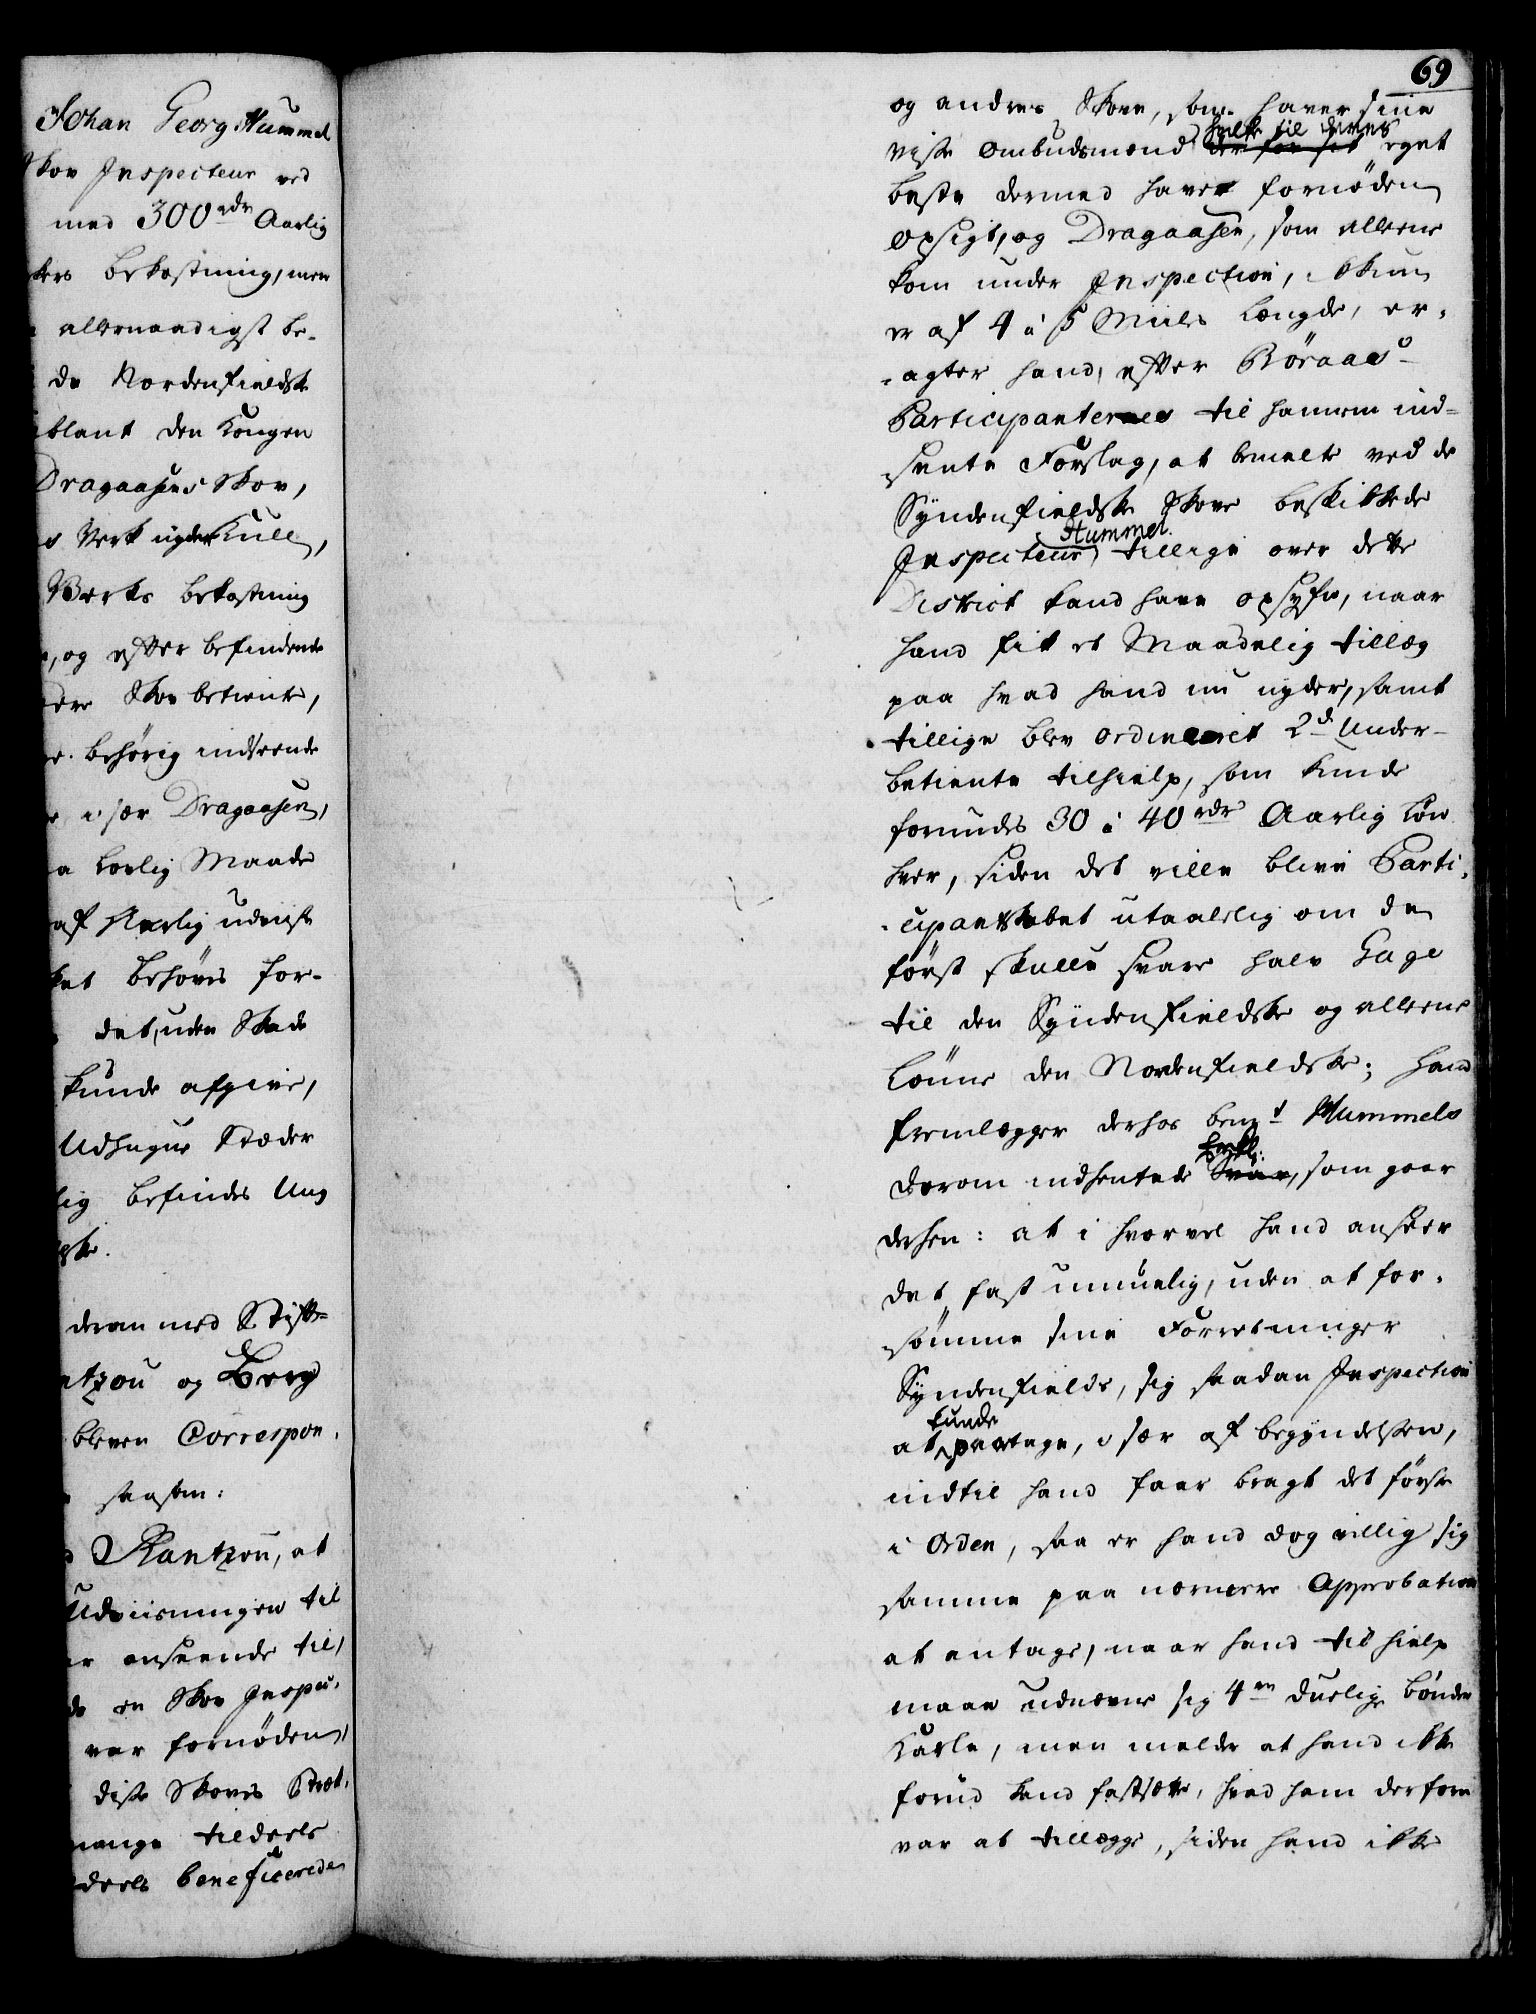 Johan Georg Hummel
Skov Inspecteur ved
med 300 rdr Aarlig
bekostning, men
allernaadigst be-
de Nordenfieldske
iblant den Kongen
Dragaasens Skov,
Verk nyder Kull,
Werks bekostning
, og efter befindende
Skov betiente,
behörig indseende
i sær Dragaasen,
Lovlig Maade
af Aarlig udviist
behöves for-
det, uden Skade
kunde afgive,
Udhugne Stæder
lig befindes Ung

derom med Stift-
ntzou og Berg
bleven Correspon-
saasom:
Rantzou, at
Udviisningen til
anseende til,
en Skov Inspec-
var fornöden,
disse Skoves Stræk-
mange tildeels
deels beneficerede
69
og andres Skove, som haver sine
visse ombudsmænd hvilke til deres der for sit eget
beste dermed haver fornöden
opsigt, og Dragaasen, som alleene
kom under Inspection, ikkun
er af 4 à 5 Miils Længde, er-
-agter hand, efter Röraas
Participanternes til hannem ind-
sente Forslag, at bemelte ved de
Syndenfieldske Skove beskikkede
Inspecteur Hummel tillige over dette
District kand have opsyn, naar
hand fik et Maadelig tillæg
paa hvad hand nu nyder, samt
tillige blev ordineret 2de Under-
betiente tilhielp, som kunde
forundes 30 à 40 rdr Aarlig Løn
hver, siden det ville blive Parti-
-cipantskabet utaalelig om de
först skulle svare halv Gage
til den Syndenfieldske og alleene
Lönne den Nordenfieldske; hand
fremlegger derhos bemte Hummels
derom indhentede Erkl: Svar, som gaar
derhen: at i hvorvel hand anseer
det fast umuelig, uden at for-
sömme sine Forretninger
Syndenfields, sig saadan Inspection
at kunde paatage, i sær af begyndelsen,
indtil hand faar bragt det förste
i Orden, saa er hand dog villig sig
samme paa nærmere Approbation
at antage, naar hand til hielp
maae udnævne sig 4re duelige bönder
Karle, men melder at hand ikke
forud kand fastsætte, hvad ham derfore
var at tillægge, siden hand ikke